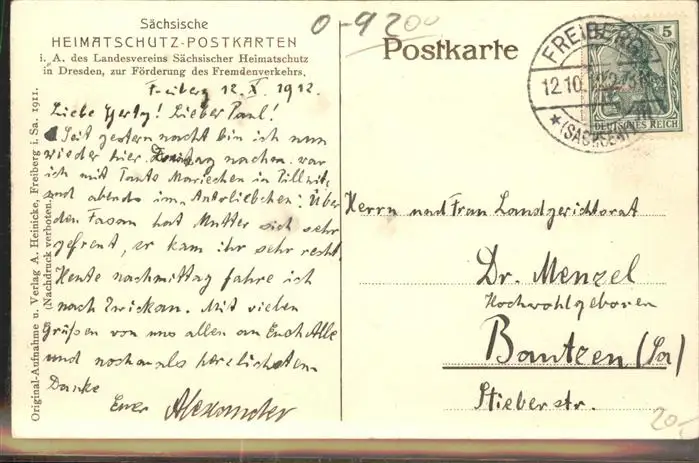 Sächsische
HEIMATSCHUTZ-POSTKARTEN
i. A. des Landesvereins Sächsischer Heimatschutz
in Dresden, zur Förderung des Fremdenverkehrs.
0-9200
Freiberg 12. X. 1912.
Liebe Herty! Lieber Paul!
Seit gestern nacht bin ich nun
wieder hier. nachm. war
ich mit Tante Mariechen in Pillnitz
und abends im Über
den Fasan hat Mutter sich sehr
gefreut, er kam ihr sehr recht.
Heute nachmittag fahre ich
nach Zwickau. Mit vielen
Grüßen von uns allen an Euch Alle
und nochmals herzlichstem
Danke
Euer Alexander
Original-Aufnahme u. Verlag A. Heinicke, Freiberg i. Sa. 1911.
(Nachdruck verboten.)
Postkarte
FREIBERG
12.10.
*(SACHSEN)
5
DEUTSCHES REICH
Herrn und Frau Landgerichtsrat
Dr. Menzel
Hochwohlgeboren
Bautzen (Sa)
Stieberstr.
20.-